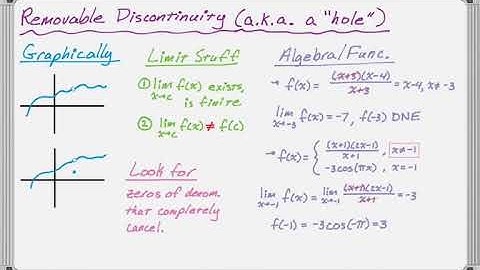 Removable Discontinuity (a.k.a. a "hole")
Graphically
Limit Stuff
① lim x→c f(x) exists, is finite
② lim x→c f(x) ≠ f(c)
Look for
zeros of denom.
that completely
cancel.
Algebra/Func.
→ f(x) = (x+3)(x-4)/x+3 = x-4, x≠-3
lim x→-3 f(x) = -7, f(-3) DNE
→ f(x) = { (x+1)(2x-1)/x+1 , x≠-1
-3cos(πx) , x=-1
lim x→-1 f(x) = lim x→-1 (x+1)(2x-1)/x+1 = -3
f(-1) = -3cos(-π) = 3